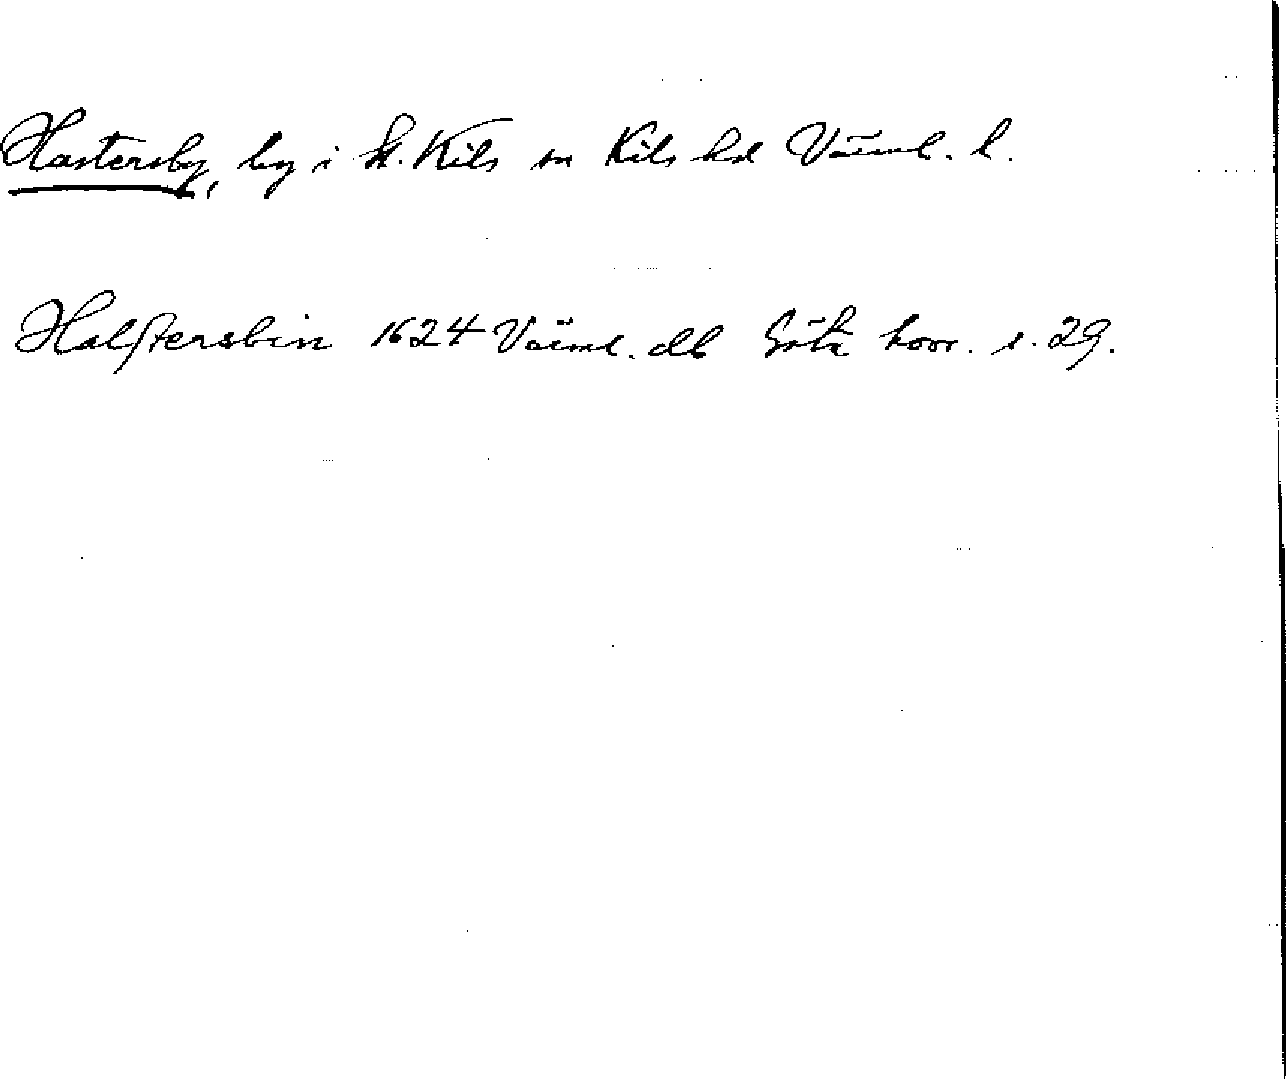 Hastersby, by i St. Kils sn Kils hd Värml. l.
Halstersbin 1624 Värml. db Göta hovr. s. 29.